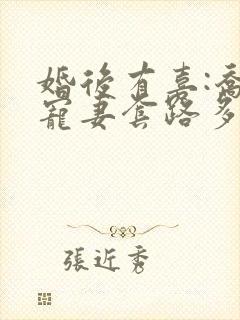 婚後有喜:喬
寵妻套路多
張近秀